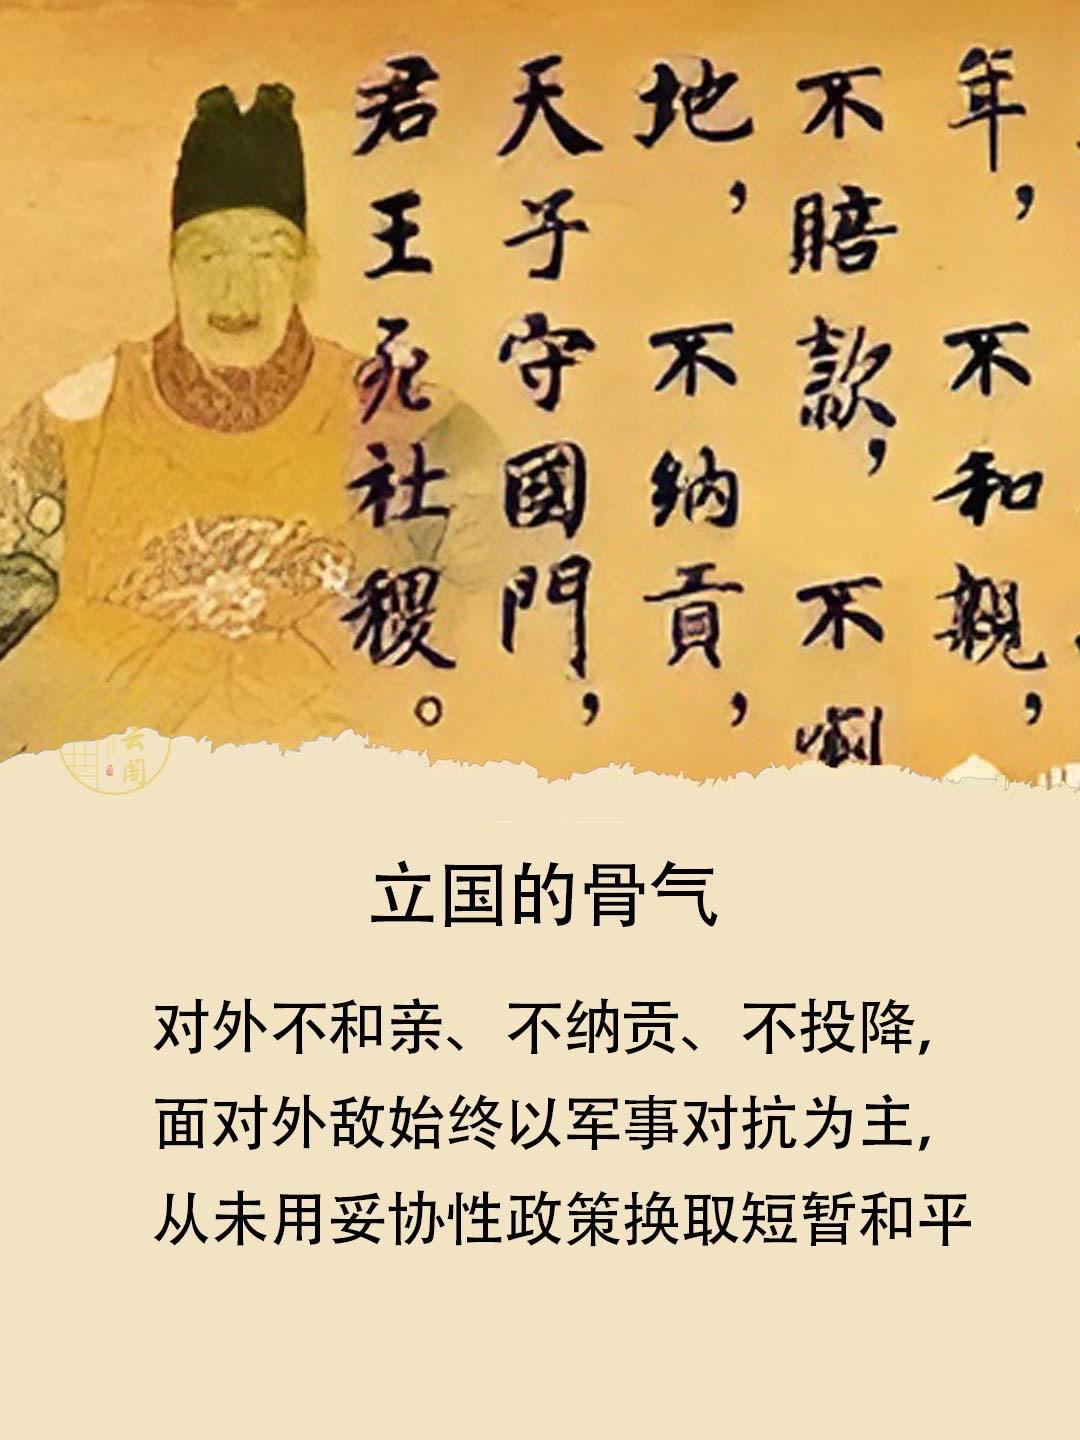 年，不和親，
不賠款，不
地，不納貢，
天子守國門，
君王死社稷。
云阁
立国的骨气
对外不和亲、不纳贡、不投降,
面对外敌始终以军事对抗为主,
从未用妥协性政策换取短暂和平